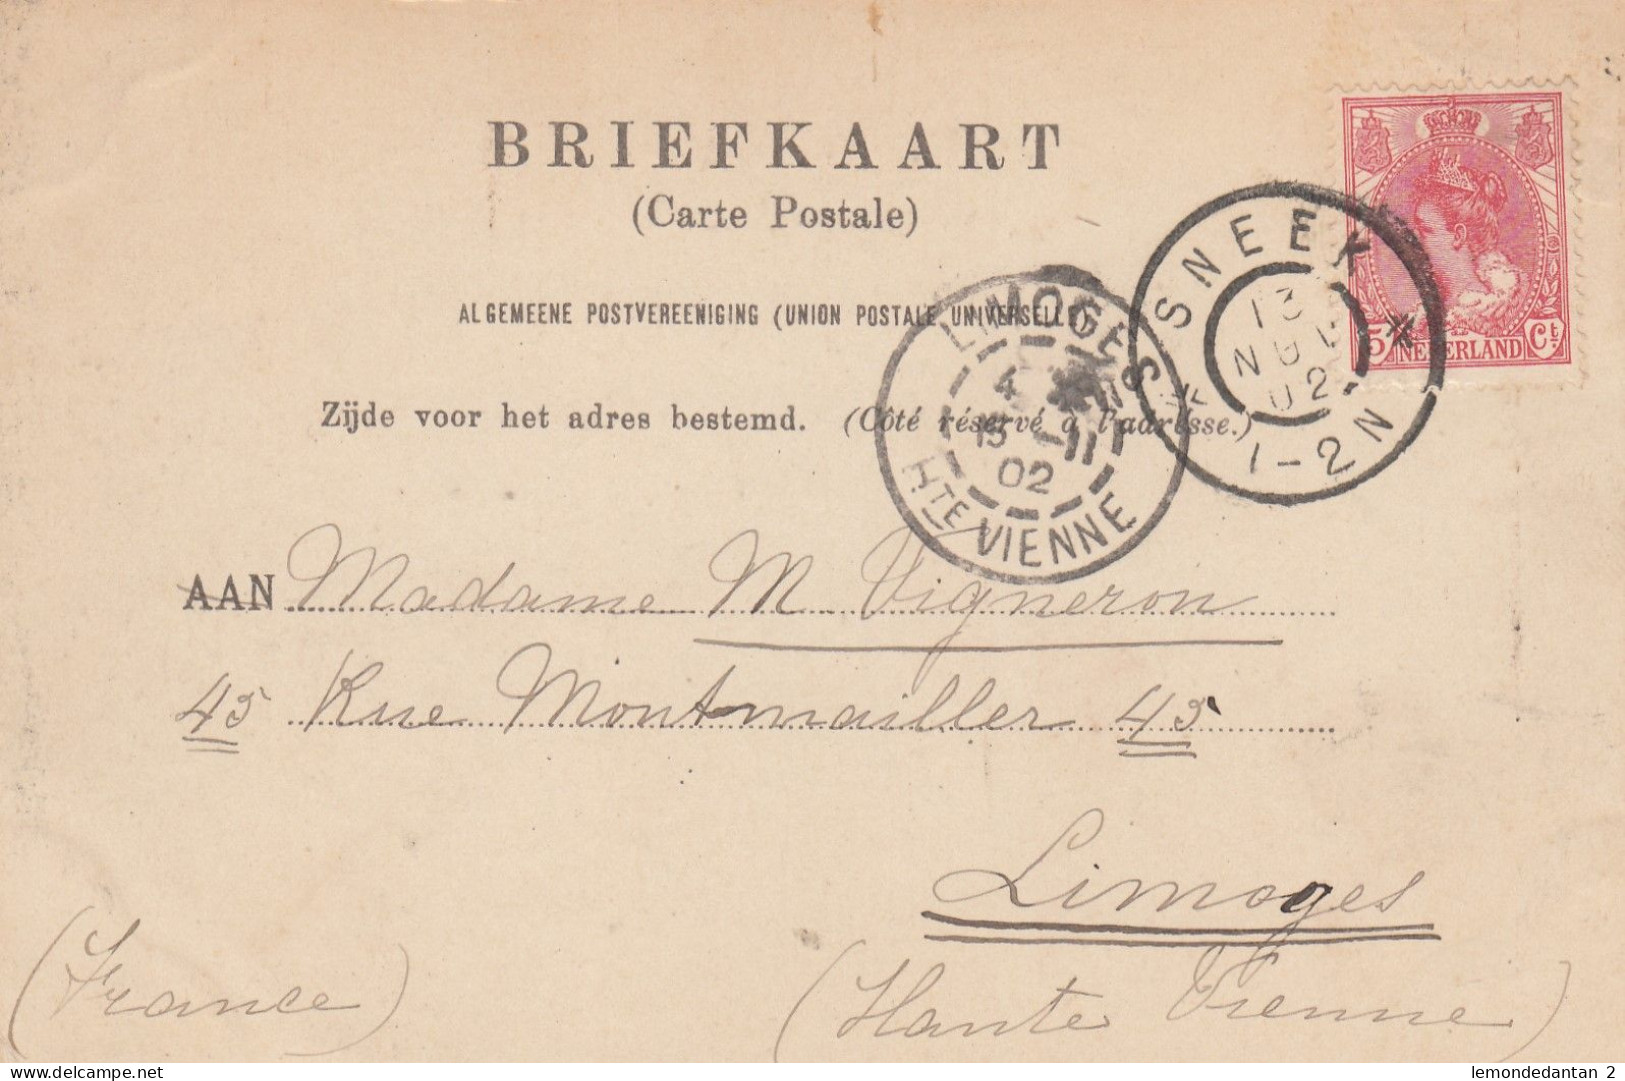 BRIEFKAART
(Carte Postale)
ALGEMEENE POSTVEREENIGING (UNION POSTALE UNIVERSELLE)
Zijde voor het adres bestemd. (Côté réservé à l'adresse.)
5 Ct NEDERLAND
SNEEK
13
NOV
02
1-2N
LIMOGES
4
15 -11
02
HTE VIENNE
AAN Madame M Vigneron
45 Rue Montmailler 45
Limoges
(France)
(Haute Vienne)
delcampe.net
lemondedantan 2